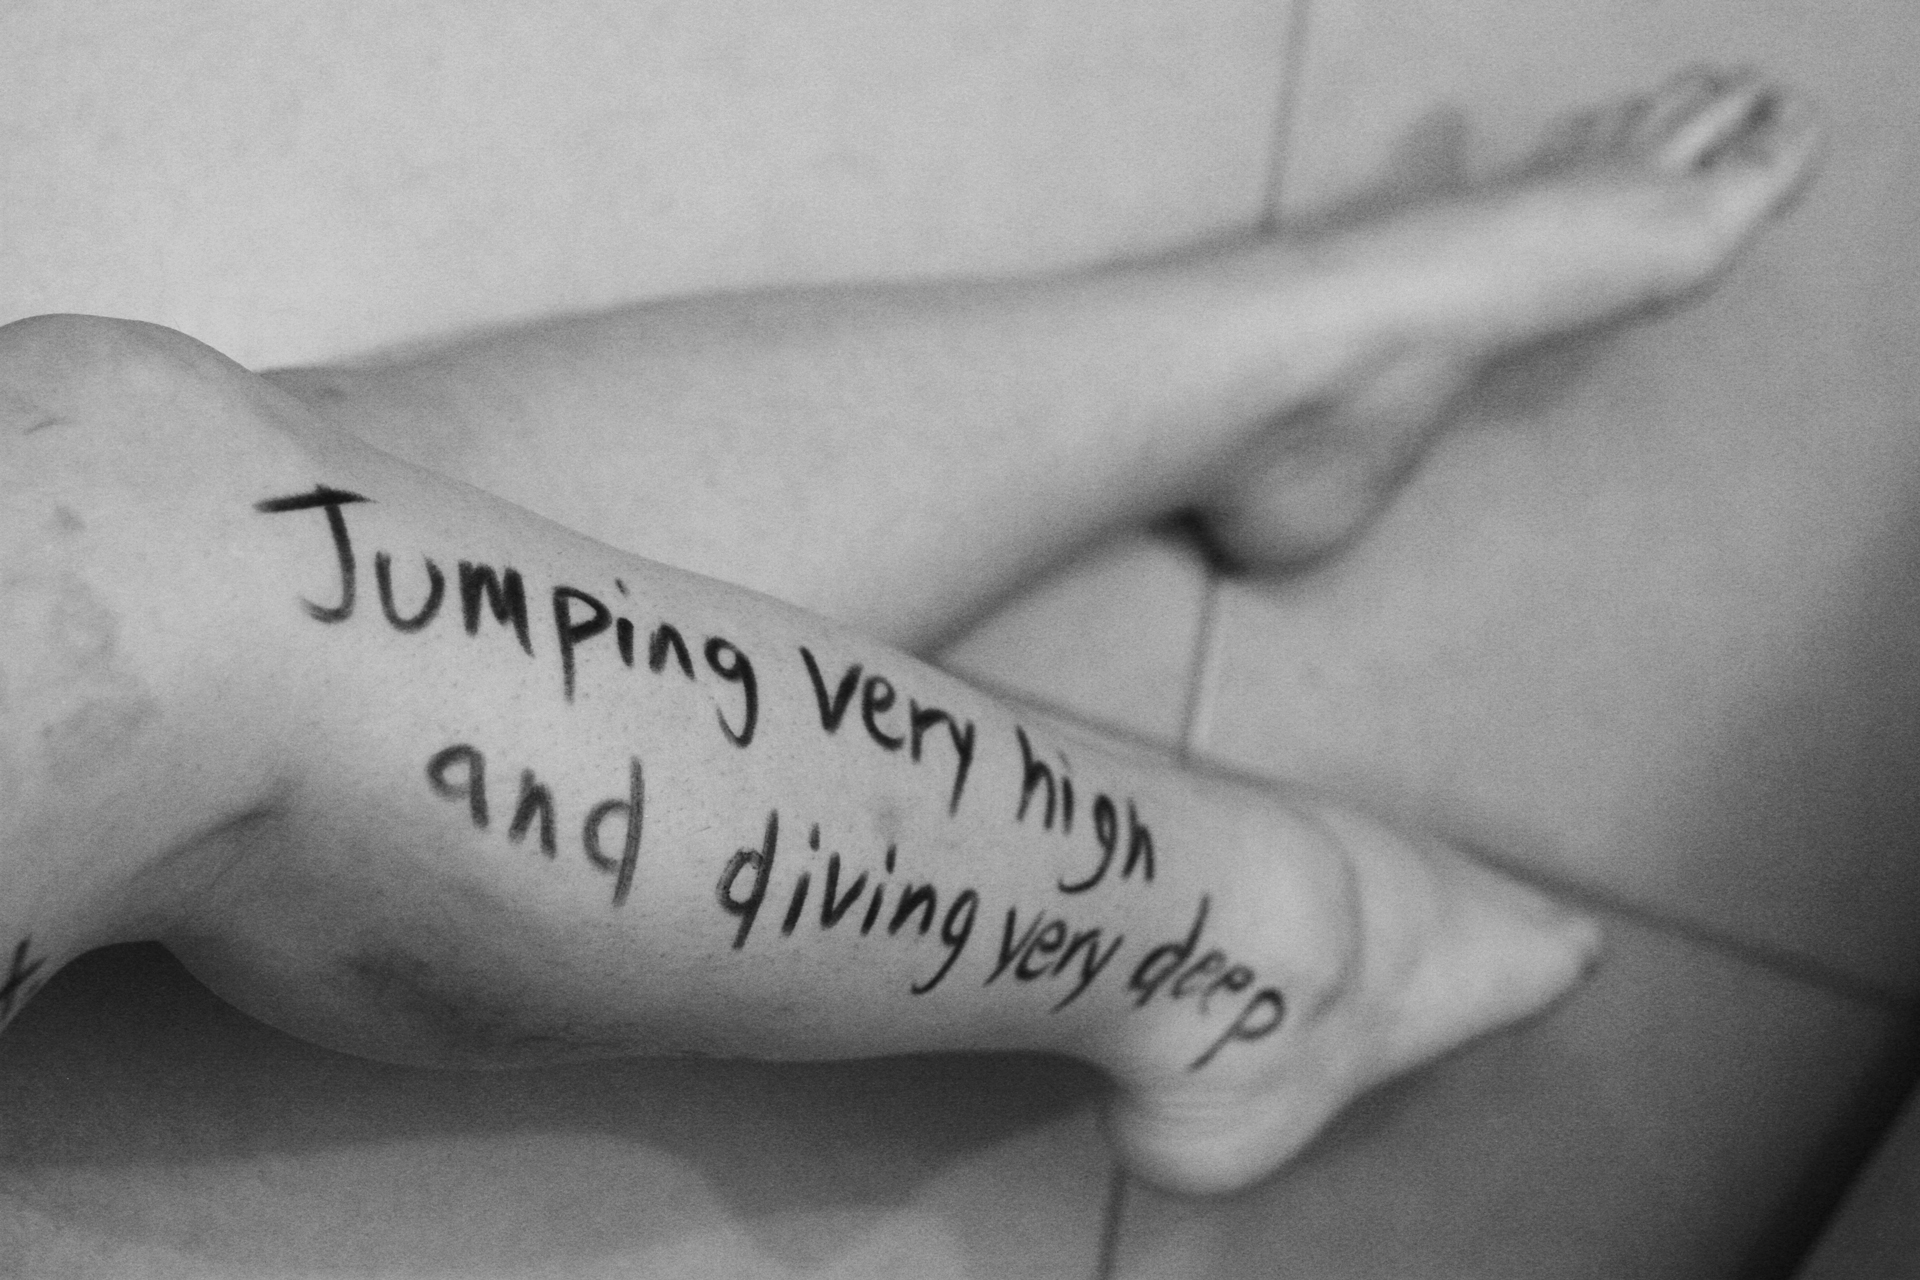 Jumping very high
and diving very deep